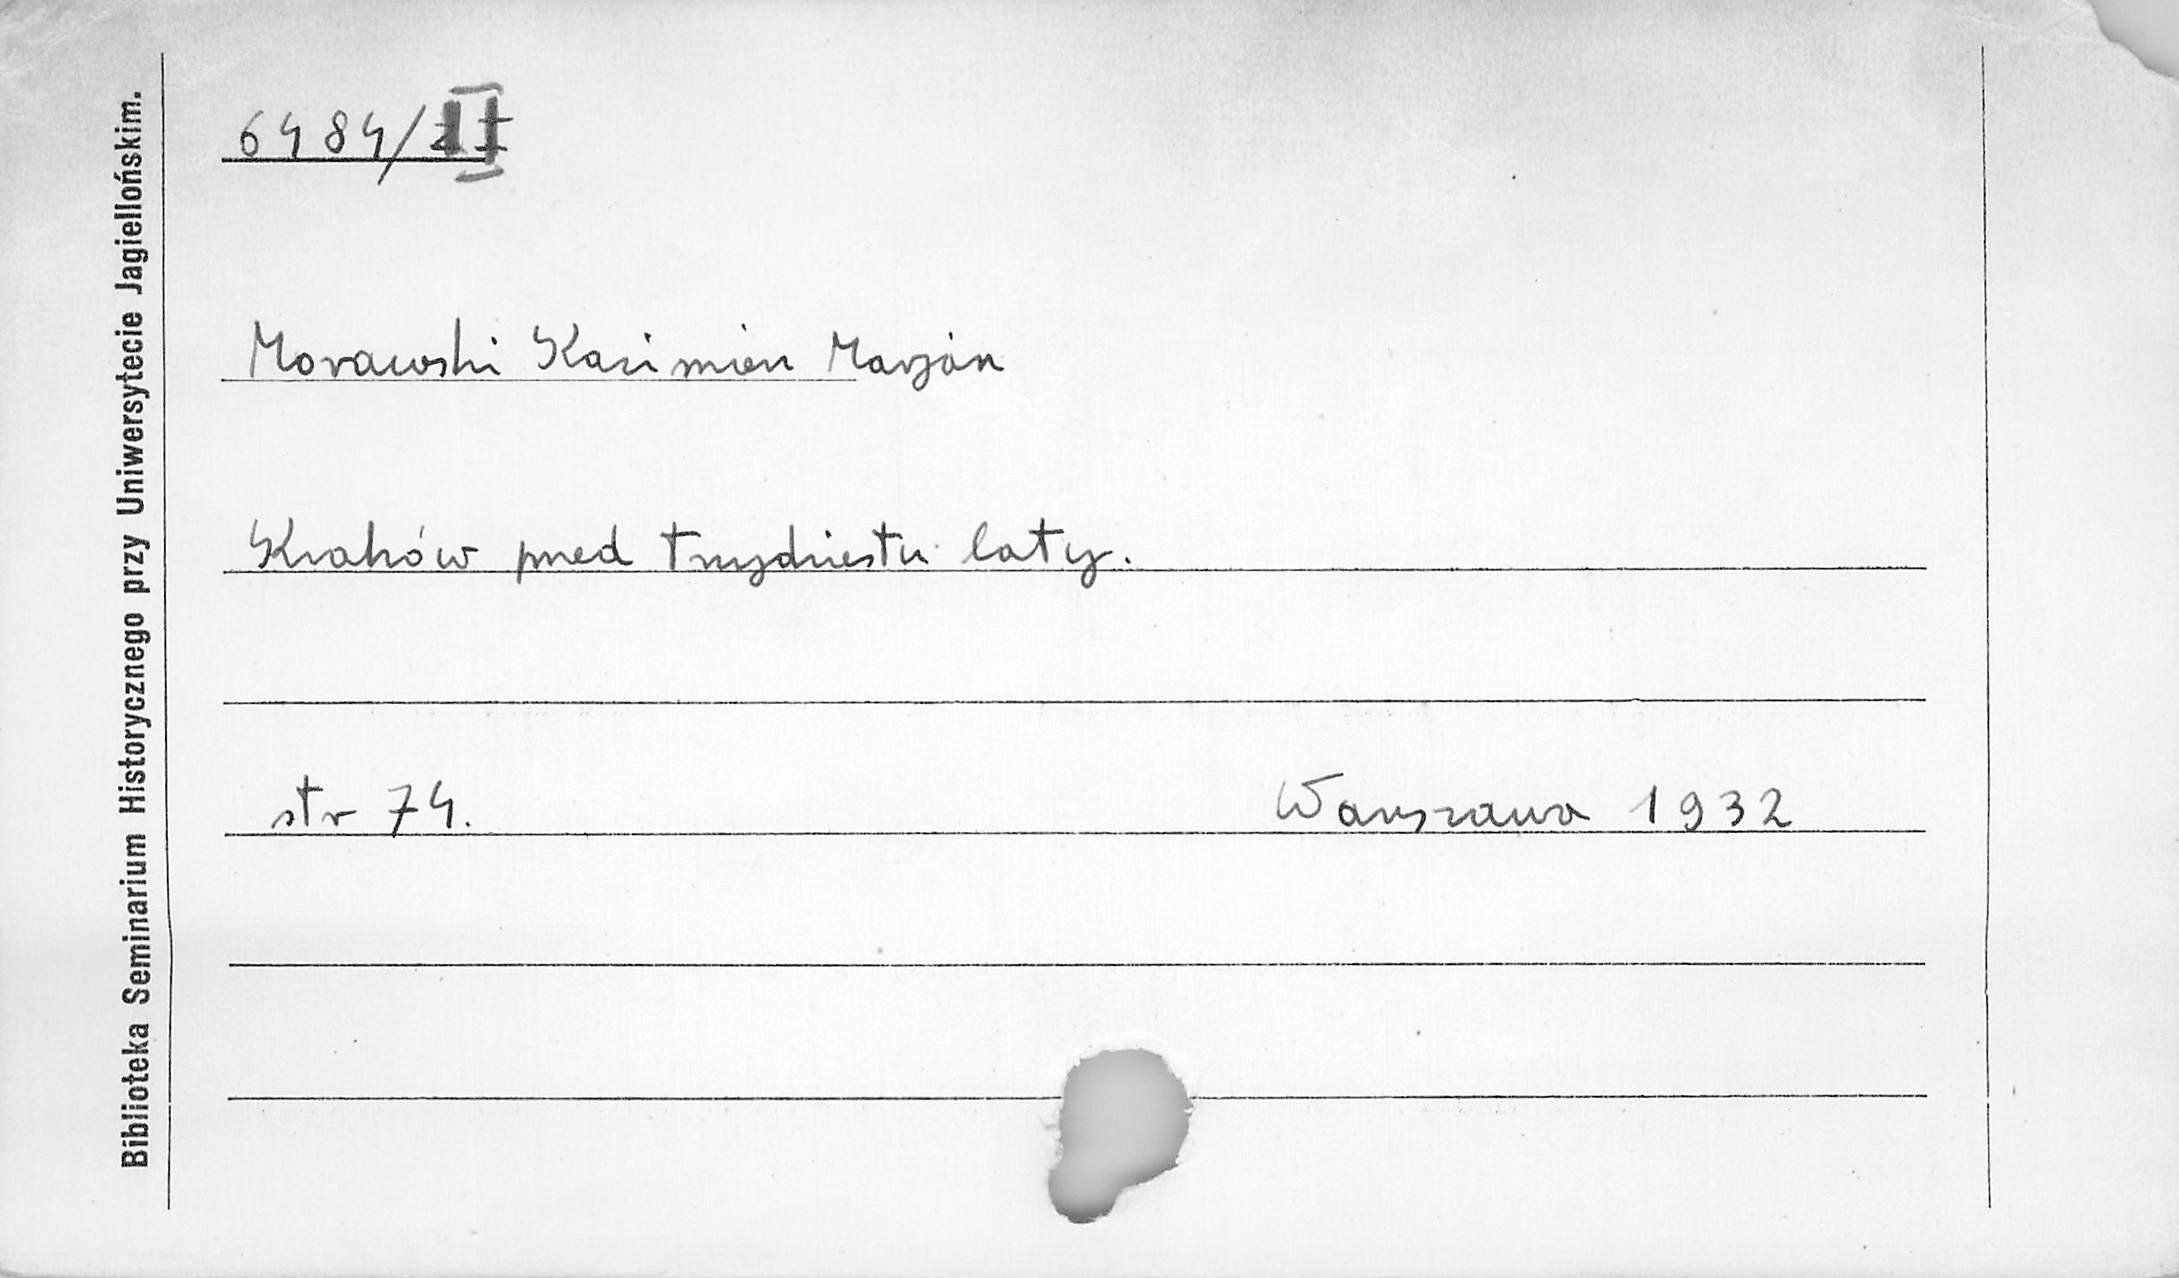 Biblioteka Seminarium Historycznego przy Uniwersytecie Jagiellońskim.
6484/II
Morawski Kazimierz Marjan
Kraków przed trzydziestu laty.
str 74.
Warszawa 1932